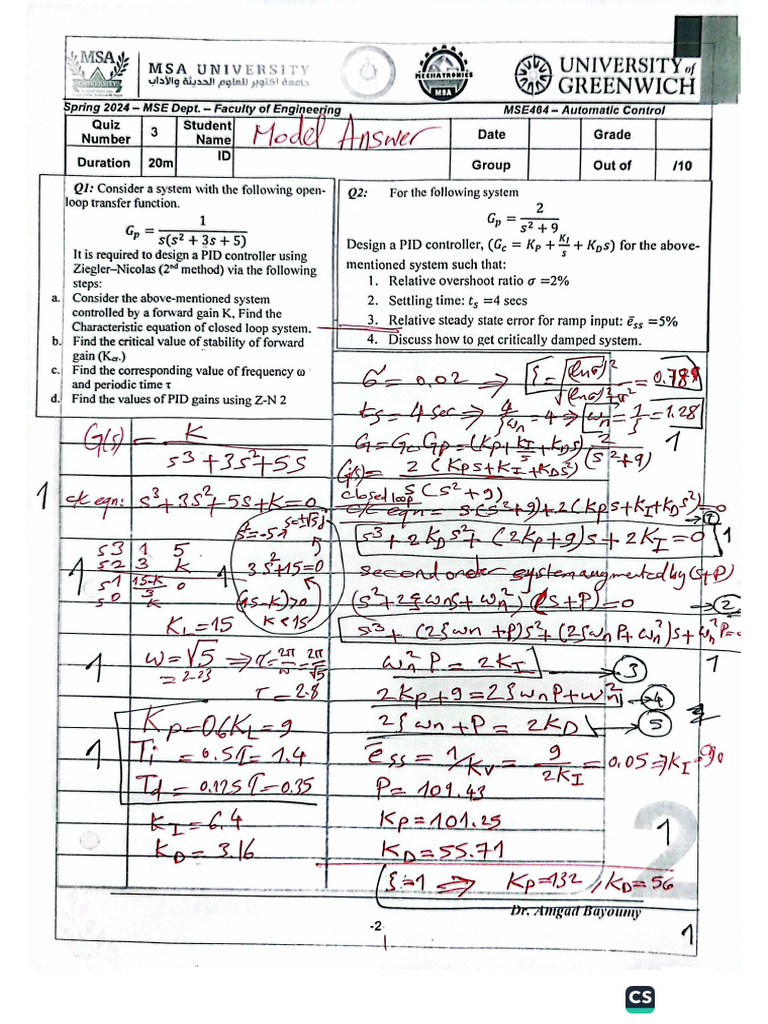 MSA
UNIVERSITY
MSA UNIVERSITY
جامعة أكتوبر للعلوم الحديثة والآداب
MECHATRONICS
MSA
UNIVERSITY of
GREENWICH
Spring 2024 – MSE Dept. – Faculty of Engineering MSE464 – Automatic Control
Quiz Number 3 Student Name Model Answer Date Grade
Duration 20m ID Group Out of /10
Q1: Consider a system with the following open-
loop transfer function.
Gp = 1 / s(s² + 3s + 5)
It is required to design a PID controller using
Ziegler–Nicolas (2nd method) via the following
steps:
a. Consider the above-mentioned system
controlled by a forward gain K, Find the
Characteristic equation of closed loop system.
b. Find the critical value of stability of forward
gain (Kcr.)
c. Find the corresponding value of frequency ω
and periodic time τ
d. Find the values of PID gains using Z-N 2
G(s) = K / s³+3s²+5s
1 c/c eqn: s³+3s²+5s+K=0
s3 1 5
s2 3 K
1 s1 15-K/3 0
s0 K
1
s²=-5 s=±√5j
3s²+15=0
(15-K)>0
K<15
KL=15
1 ω=√5 ⇒ τ=2π/ω=2π/√5
=2.23
τ=2.8
Kp=0.6KL=9
1 Ti=0.5τ=1.4
Td=0.125τ=0.35
KI=6.4
KD=3.16
Q2: For the following system
Gp = 2 / s² + 9
Design a PID controller, (Gc = KP + KI/s + KDs) for the above-
mentioned system such that:
1. Relative overshoot ratio σ =2%
2. Settling time: ts =4 secs
3. Relative steady state error for ramp input: ēss =5%
4. Discuss how to get critically damped system.
σ=0.02 ⇒ ξ=√(lnσ)²/√(lnσ)²+π²=0.78
ts=4sec ⇒ 4/ξωn=4 ⇒ ωn=1/ξ=1.28
G=Gc Gp=(Kp+KI/s+KDs) 2/(s²+9) 1
G(s)=2(Kps+KI+KDs²)/s(s²+9)
closed loop
c/c eqn = s(s²+9)+2(Kps+KI+KDs²)=0
s³+2KDs²+(2Kp+9)s+2KI=0 1
second order system augmented by (s+P)
(s²+2ξωns+ωn²)(s+P)=0 → 2
s³+(2ξωn+P)s²+(2ξωnP+ωn²)s+ωn²P=0
1
ωn²P=2KI → 3
2Kp+9=2ξωnP+ωn² → 4
2ξωn+P=2KD → 5
ēss=1/Kv=9/2KI=0.05⇒KI=90
P=109.43
Kp=101.25
1
KD=55.71
ξ=1 ⇒ Kp=132, KD=56
2
Dr. Amgad Bayoumy
-2-
1
CS